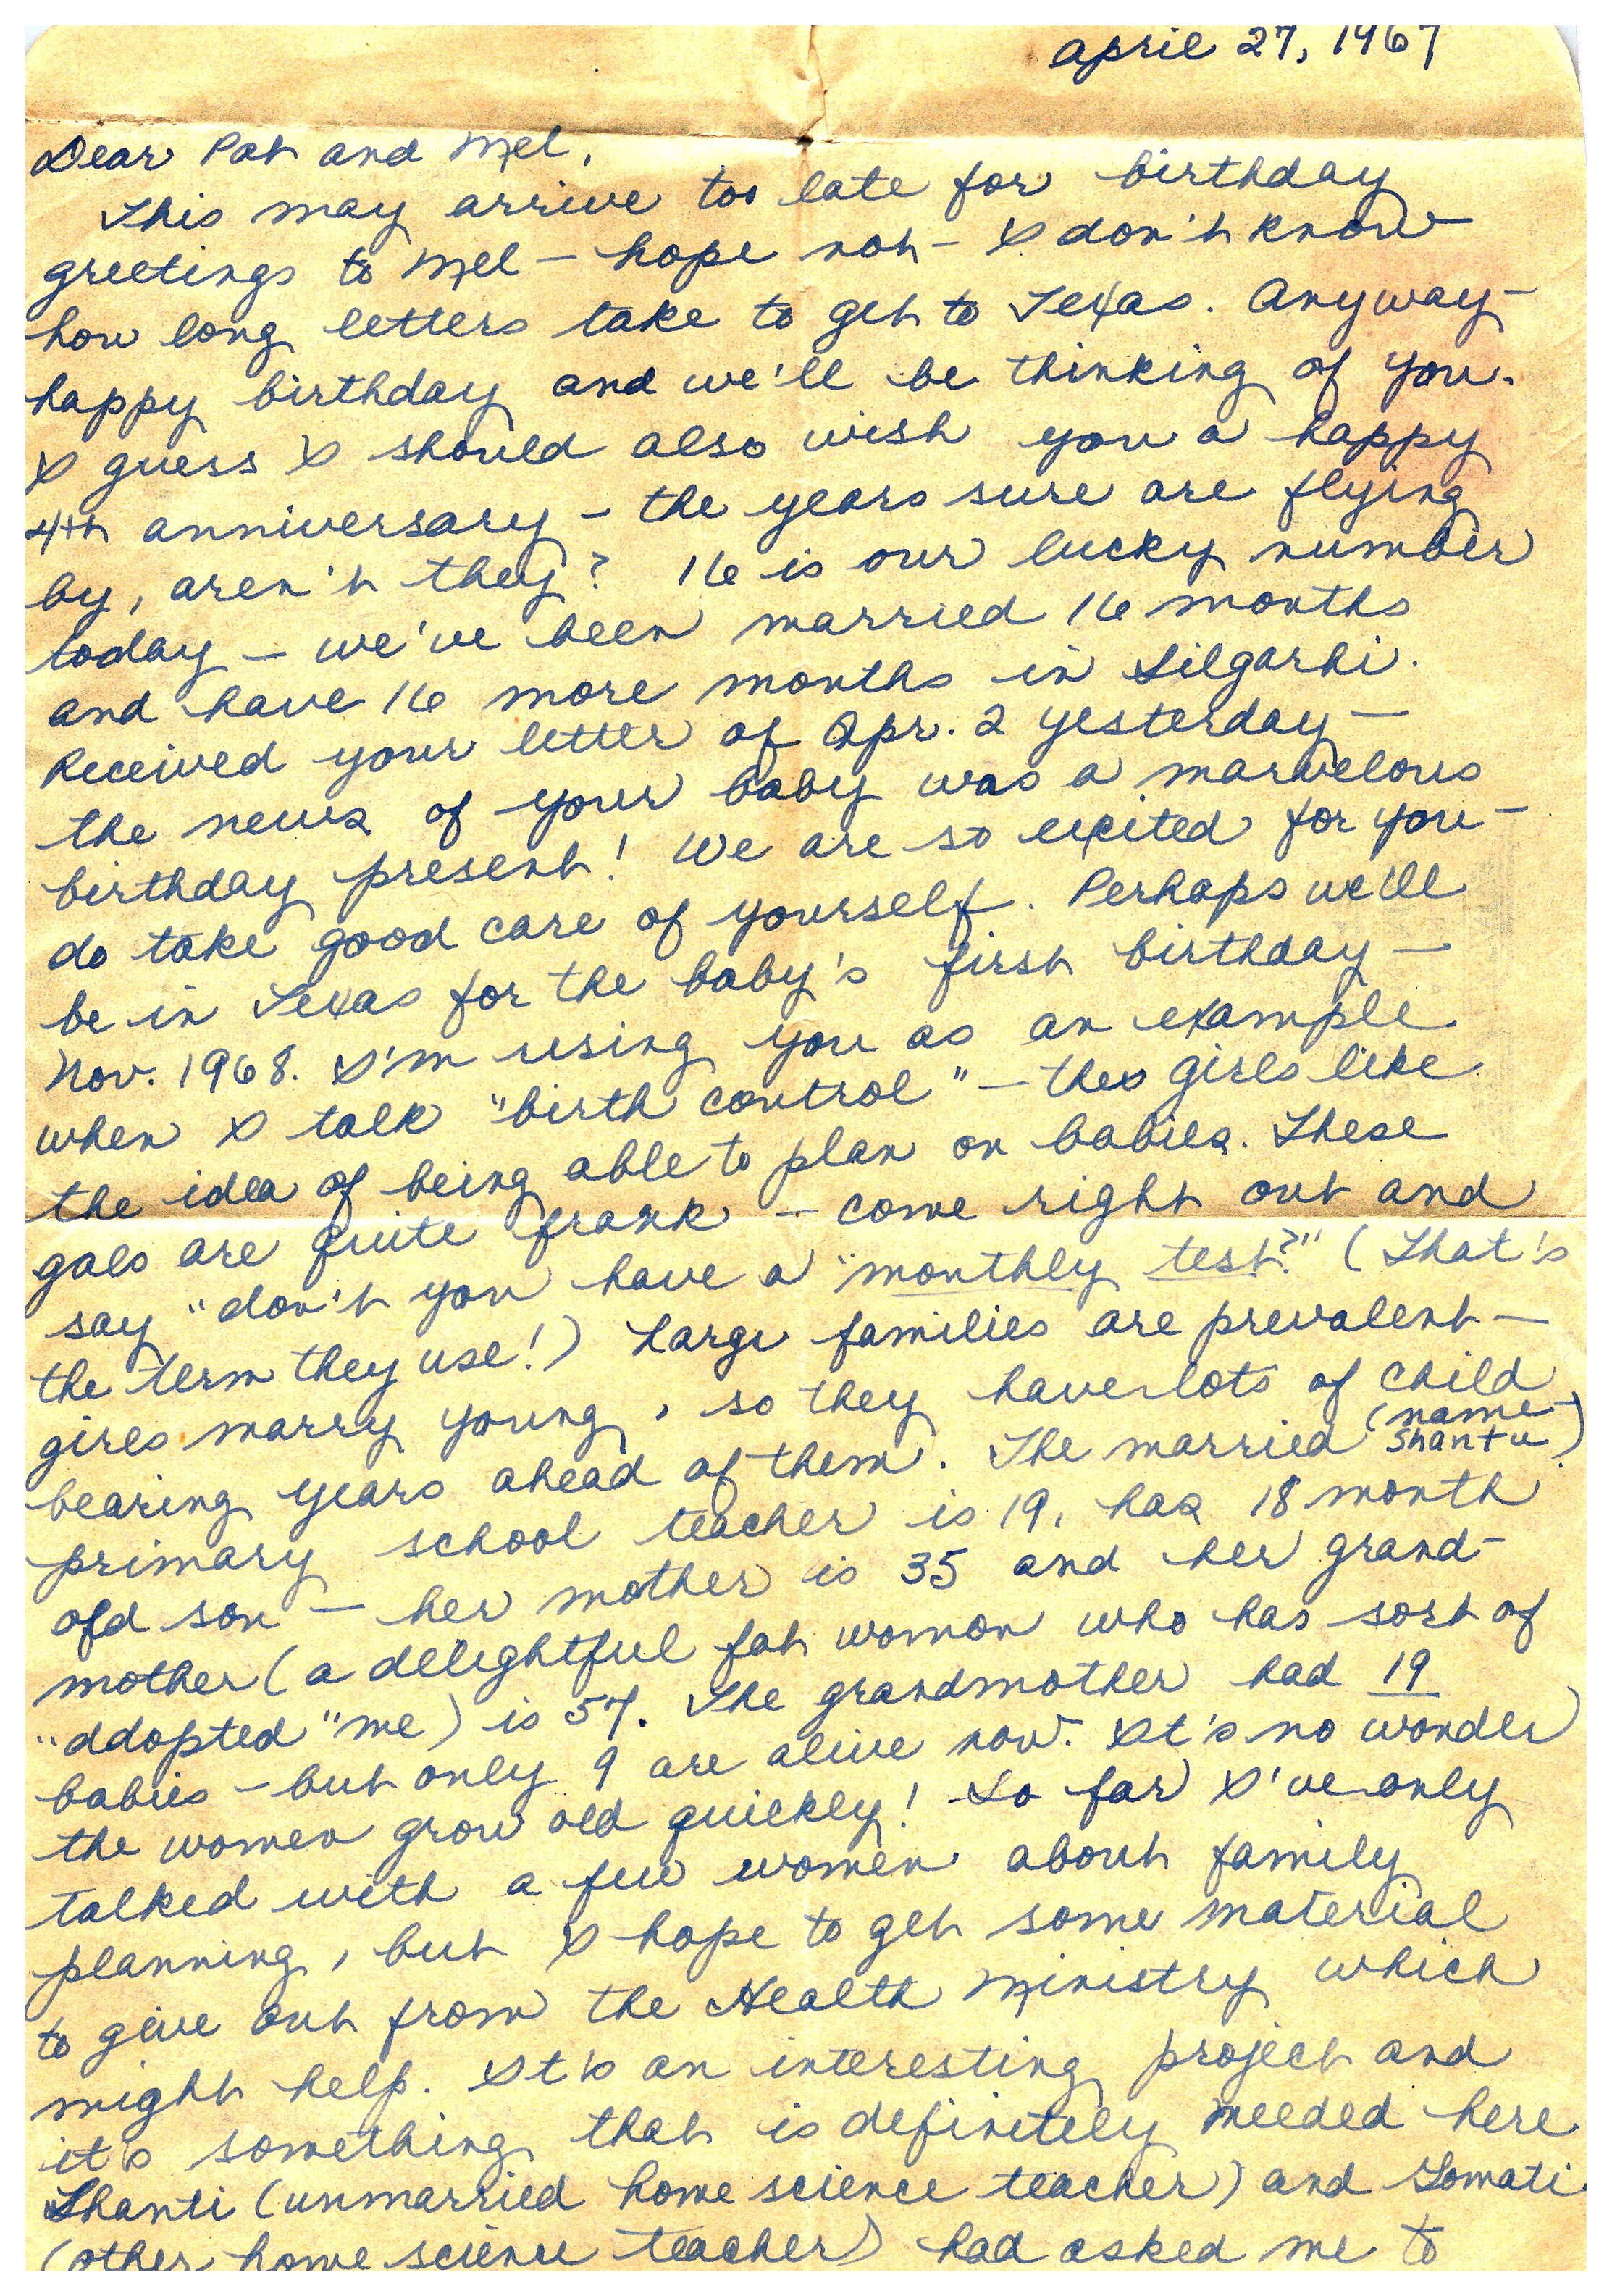 April 27, 1967
Dear Pat and Mel,
This may arrive too late for birthday
greetings to Mel – hope not – I don't know
how long letters take to get to Texas. Anyway –
happy birthday and we'll be thinking of you.
I guess I should also wish you a happy
4th anniversary – the years sure are flying
by, aren't they? 16 is our lucky number
today – we've been married 16 months
and have 16 more months in Silgarhi.
Received your letter of Apr. 2 yesterday –
the news of your baby was a marvelous
birthday present! We are so excited for you –
do take good care of yourself. Perhaps we'll
be in Texas for the baby's first birthday –
Nov. 1968. I'm using you as an example
when I talk "birth control" – the girls like
the idea of being able to plan on babies. These
gals are quite frank – come right out and
say "don't you have a "monthly test?" (That's
the term they use!) Large families are prevalent –
girls marry young, so they have lots of child
bearing years ahead of them. The married (name Shantu)
primary school teacher is 19, has 18 month
old son – her mother is 35 and her grand-
mother (a delightful fat woman who has sort of
"adopted" me) is 57. The grandmother had 19
babies – but only 9 are alive now. It's no wonder
the women grow old quickly! So far I've only
talked with a few women about family
planning, but I hope to get some material
to give out from the Health Ministry which
might help. It's an interesting project and
it's something that is definitely needed here.
Shanti (unmarried home science teacher) and Gomati
(other home science teacher) had asked me to